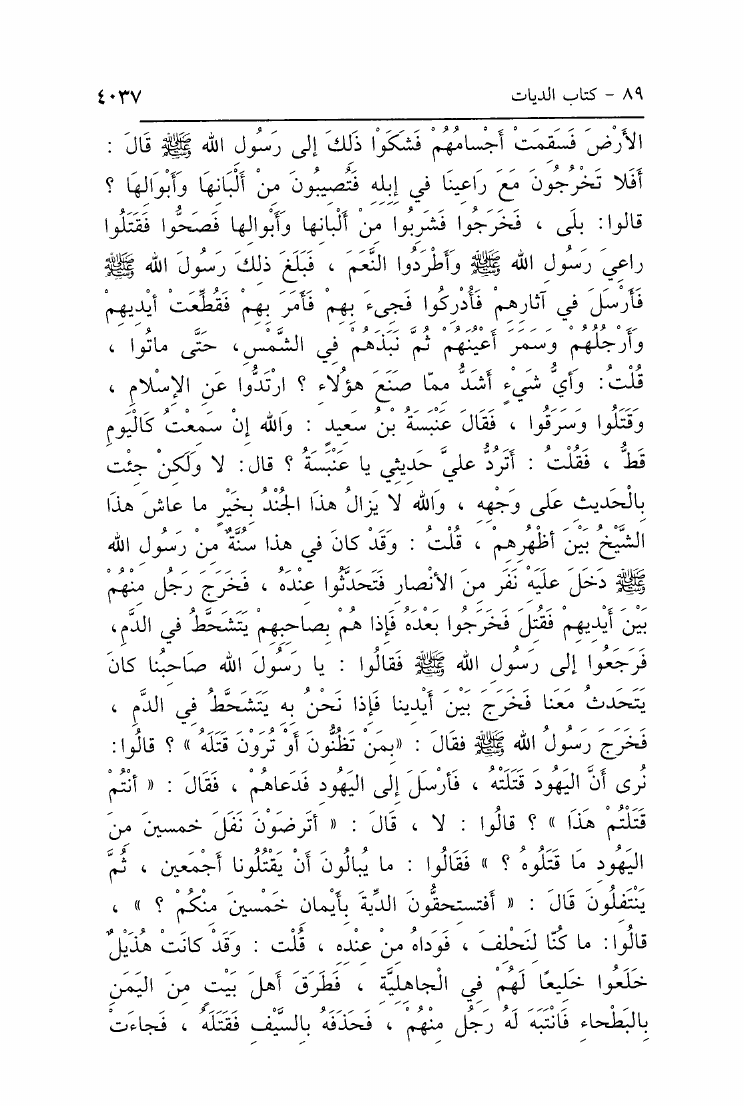 ٨٩ - كتاب الديات ٤٠٣٧
الأَرْضَ فَسَقِمَتْ أَجْسامُهُمْ فَشَكَوْا ذَلكَ إلى رَسُول الله ﷺ قَالَ :
أَفَلا تَخْرُجُونَ مَعَ رَاعِينَا في إبلِهِ فَتُصِيبُونَ مِنْ أَلْبَانِهَا وَأَبْوَالِهَا ؟
قالوا: بلَى ، فَخَرَجُوا فَشَرِبُوا مِنْ أَلْبانِها وَأَبْوالِها فَصَحُّوا فَقَتَلُوا
راعِيَ رَسُولِ الله ﷺ وَأَطْرَدُوا النَّعَمَ ، فَبَلَغَ ذلِكَ رَسُولَ الله ﷺ
فَأَرْسَلَ في آثارِهِمْ فَأُدْرِكُوا فَجِيءَ بِهِمْ فَأَمَرَ بِهِمْ فَقُطِّعَتْ أيْدِيهِمْ
وَأَرْجُلُهُمْ وَسَمَرَ أَعْيُنَهُمْ ثُمَّ نَبَذَهُمْ فِي الشَّمْسِ، حَتَّى ماتُوا ،
قُلْتُ: وَأيُّ شَيْءٍ أشَدُّ ممّا صَنَعَ هؤُلاءِ ؟ ارْتَدُّوا عَنِ الإسْلامِ ،
وَقَتَلُوا وَسَرَقُوا ، فَقَالَ عَنْبَسَةُ بْنُ سَعِيدٍ : وَالله إنْ سَمِعْتُ كَالْيَومِ
قَطُّ ، فَقُلْتُ : أَتَرُدُّ عليَّ حَدِيثِي يا عَنْبَسَةُ ؟ قال: لا وَلَكِنْ جِئْت
بِالْحَدِيثِ عَلى وَجْهِهِ ، وَالله لا يَزالُ هذا الجُنْدُ بِخَيْرٍ ما عاشَ هذا
الشَّيْخُ بَيْنَ أَظْهُرِهِمْ ، قُلْتُ : وَقَدْ كانَ في هذا سُنَّةٌ مِنْ رَسُولِ الله
ﷺ دَخَلَ عَلَيْهِ نَفَر مِنَ الأنْصارِ فَتَحَدَّثُوا عِنْدَهُ ، فَخَرَجَ رَجُل مِنْهُمْ
بَيْنَ أَيْدِيهِمْ فَقُتِلَ فَخَرَجُوا بَعْدَهُ فَإذا هُمْ بِصاحِبِهِمْ يَتَشَحَّطُ في الدَّمِ،
فَرَجَعُوا إلى رَسُولِ الله ﷺ فَقالُوا : يا رَسُولَ الله صَاحِبُنا كانَ
يَتَحَدثُ مَعَنا فَخَرَجَ بَيْنَ أيْدِينا فَإذا نَحْنُ بِهِ يَتَشَحَّطُ في الدَّمِ ،
فَخَرَجَ رَسُولُ الله ﷺ فقالَ : «بِمَنْ تَظُنُّونَ أوْ تُرَوْنَ قَتَلَهُ » ؟ قالُوا:
نُرى أنَّ اليَهُودَ قَتَلَتْهُ ، فَأرْسَلَ إلى اليَهُودِ فَدَعاهُمْ ، فَقَالَ : « أنْتُمْ
قَتَلْتُمْ هَذَا » ؟ قالُوا : لا ، قَالَ : « أتَرضَوْنَ نَفَلَ خمسينَ مِنَ
اليَهُودِ مَا قَتَلُوهُ ؟ » فَقَالُوا : ما يُبالُونَ أنْ يَقْتُلُونا أجْمَعين ، ثُمَّ
يَنْتَفِلُونَ قَالَ : « أفتستحقُّونَ الدِّيةَ بِأَيْمان خَمْسينَ مِنْكُمْ ؟ » ،
قالُوا: ما كُنّا لِنَحْلفَ ، فَوَداهُ مِنْ عِنْده ، قُلْت : وَقَدْ كانَتْ هُذَيْلٌ
خَلَعُوا خَلِيعًا لَهُمْ فِي الْجاهِليَّة ، فَطَرَقَ أهلَ بَيْتٍ مِنَ اليَمَنِ
بِالبَطْحاءِ فَانْتَبَهَ لَهُ رَجُل مِنْهُمْ ، فَحَذَفَهُ بِالسَّيْفِ فَقَتَلَهُ ، فَجاءَتْ